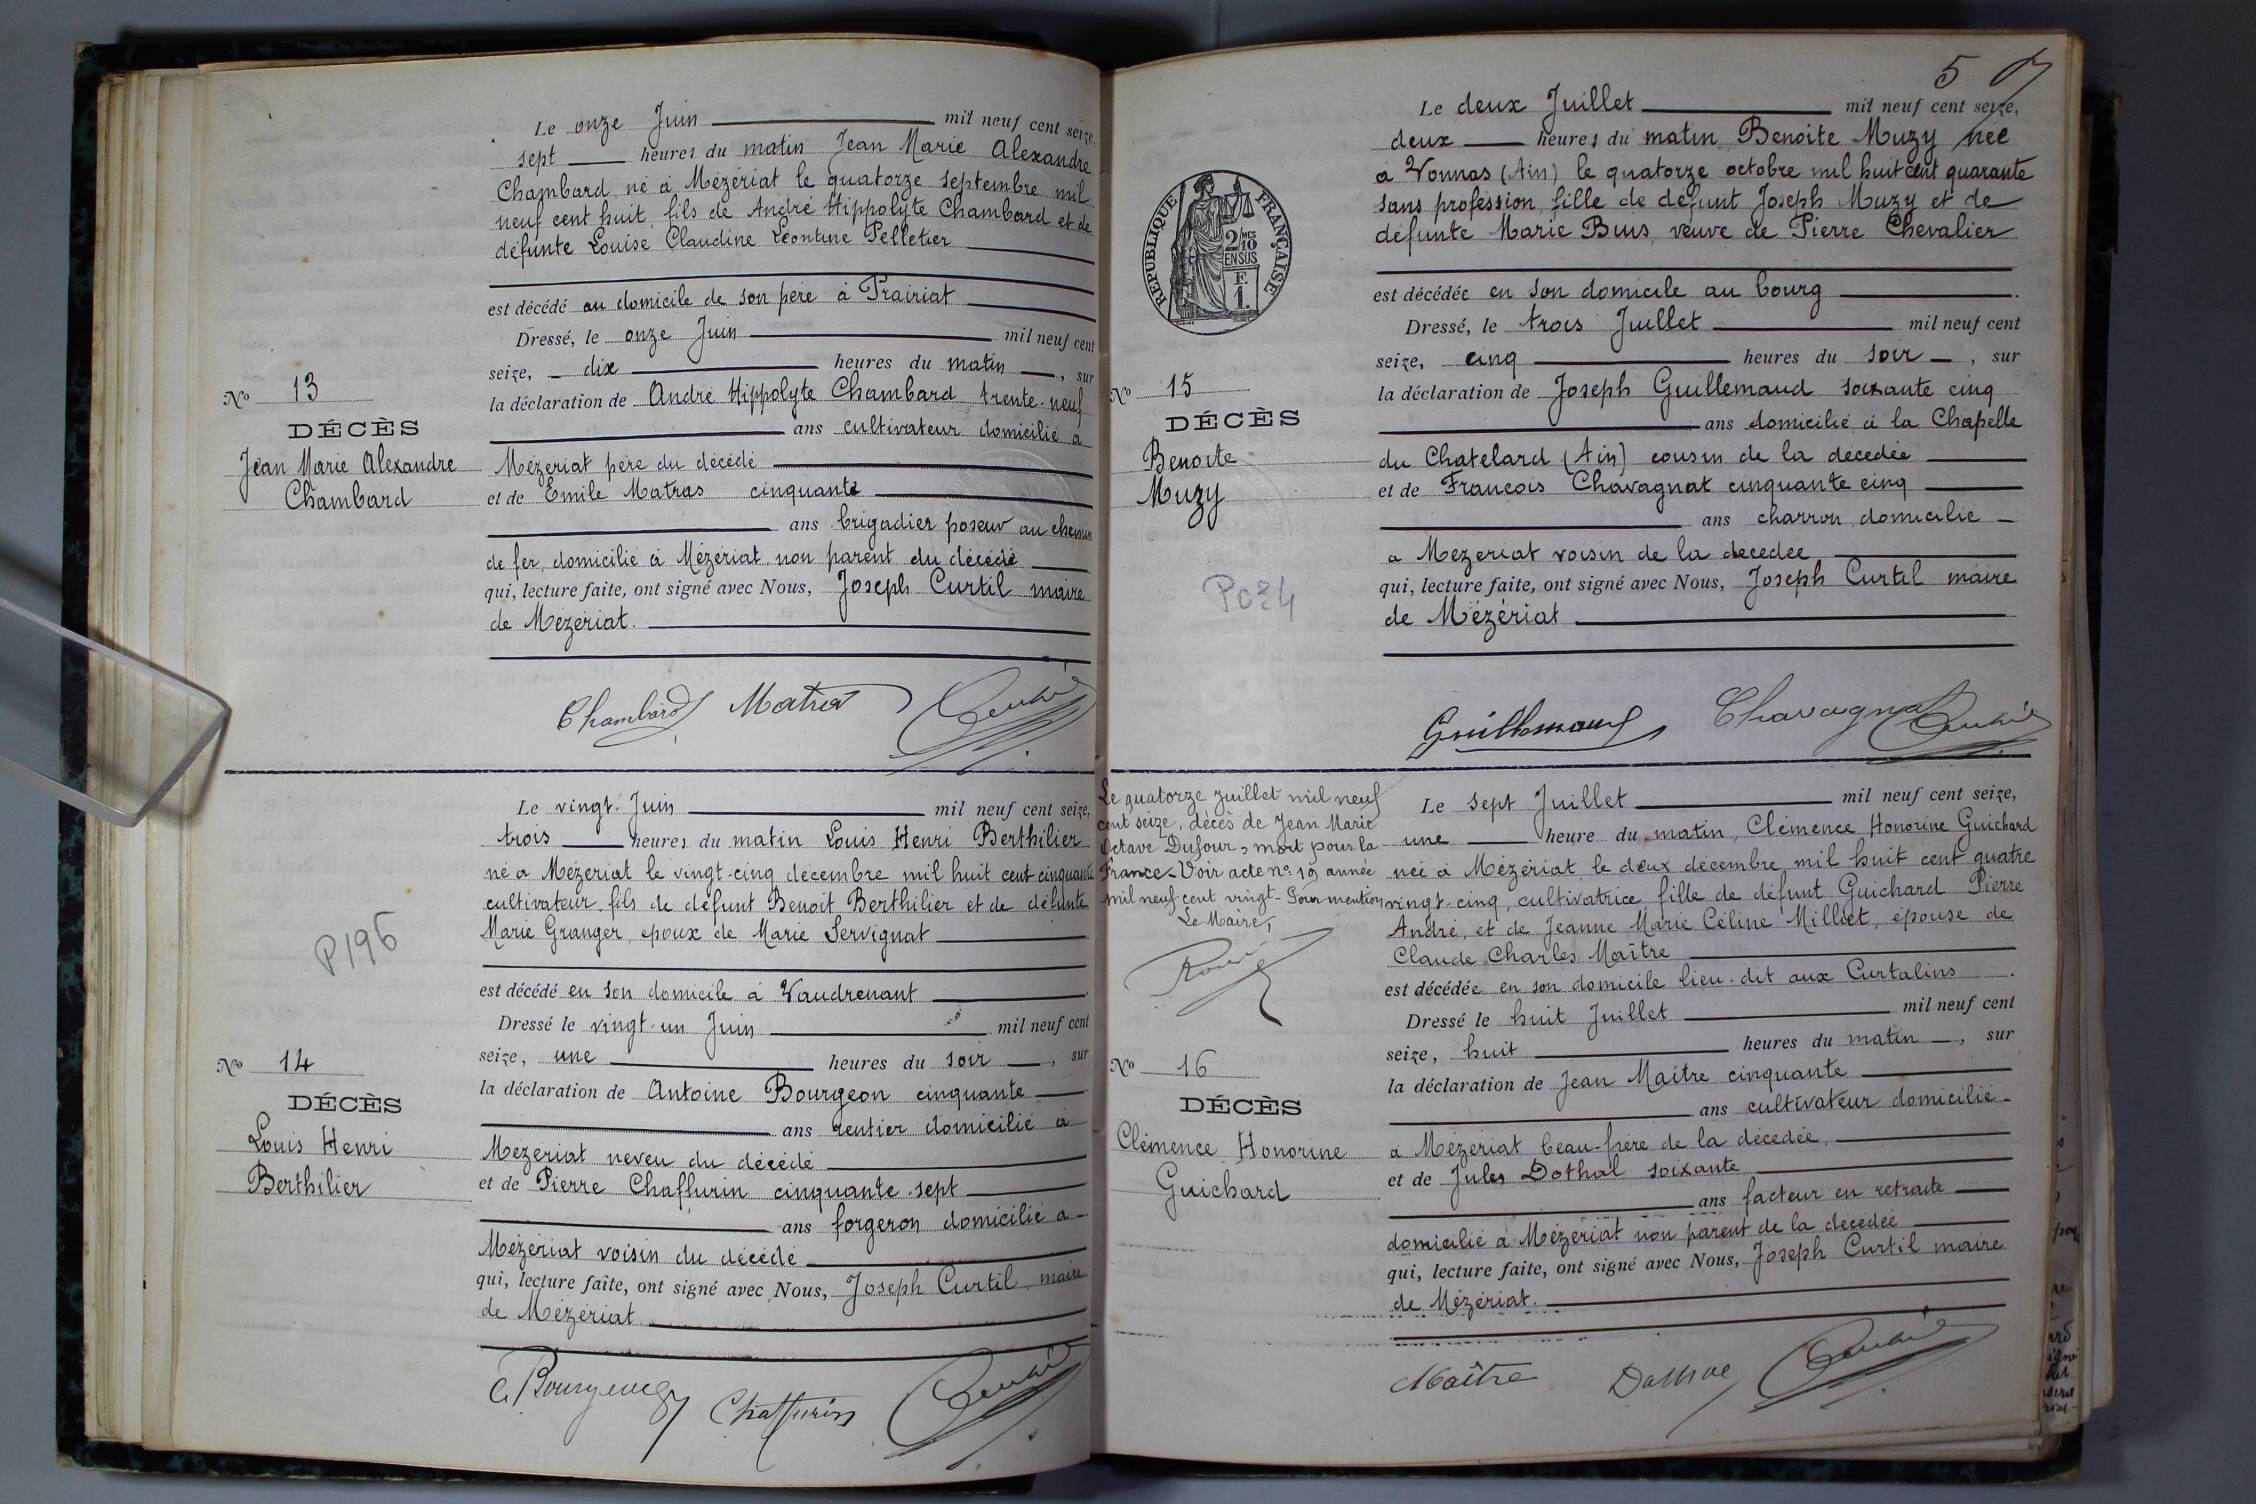 Le onze Juin mil neuf cent seize,
sept heures du matin Jean Marie Alexandre
Chambard, né à Mézériat le quatorze septembre mil
neuf cent huit, fils de André Hippolyte Chambard et de
défunte Louise Claudine Léontine Pelletier
est décédé au domicile de son père à Prairiat
Dressé, le onze Juin mil neuf cent
seize, dix heures du matin, sur
la déclaration de André Hippolyte Chambard trente-neuf
ans cultivateur domicilié à
Mézériat père du décédé
et de Emile Matras cinquante
ans brigadier poseur au chemin
de fer, domicilié à Mézériat, non parent du décédé
qui, lecture faite, ont signé avec Nous, Joseph Curtil maire
de Mézériat.
No 13
DÉCÈS
Jean Marie Alexandre
Chambard
Chambard Matras
Le vingt Juin mil neuf cent seize,
trois heures du matin Louis Henri Berthilier
né à Mézériat le vingt-cinq décembre mil huit cent cinquante
cultivateur, fils de défunt Benoit Berthilier et de défunte
Marie Granger, époux de Marie Servignat
est décédé en son domicile à Vaudrenant
Dressé le vingt-un Juin mil neuf cent
seize, une heures du soir, sur
la déclaration de Antoine Bourgeon cinquante
ans rentier domicilié à
Mézériat neveu du décédé
et de Pierre Chaffurin cinquante-sept
ans forgeron domicilié à
Mézériat voisin du décédé
qui, lecture faite, ont signé avec Nous, Joseph Curtil, maire
de Mézériat
P196
No 14
DÉCÈS
Louis Henri
Berthilier
Chaffurin
5
Le deux Juillet mil neuf cent seize,
deux heures du matin Benoite Muzy née
à Vonnas (Ain) le quatorze octobre mil huit cent quarante
sans profession, fille de défunt Joseph Muzy et de
défunte Marie Buis, veuve de Pierre Chevalier
est décédée en son domicile au bourg
Dressé, le trois Juillet mil neuf cent
seize, cinq heures du soir, sur
la déclaration de Joseph Guillemaud soixante cinq
ans domicilié à la Chapelle
du Chatelard (Ain) cousin de la décédée
et de François Chavagnat cinquante cinq
ans charron domicilié
à Mézériat voisin de la décédée
qui, lecture faite, ont signé avec Nous, Joseph Curtil maire
de Mézériat
RÉPUBLIQUE FRANÇAISE
2/10 MES
EN SUS
F.
1.
No 15
DÉCÈS
Benoite
Muzy
Guillemaud Chavagnat
Le quatorze juillet mil neuf
cent seize, décès de Jean Marie
Octave Dufour, mort pour la
France. Voir acte no 19 année
mil neuf cent vingt - Pour mention
Le Maire,
Le sept Juillet mil neuf cent seize,
une heure du matin, Clémence Honorine Guichard
née à Mézériat le deux décembre mil huit cent quatre
vingt-cinq, cultivatrice, fille de défunt Guichard Pierre
André, et de Jeanne Marie Céline Milliet, épouse de
Claude Charles Maître
est décédée en son domicile lieu-dit aux Curtalins.
Dressé le huit Juillet mil neuf cent
seize, huit heures du matin, sur
la déclaration de Jean Maître cinquante
ans cultivateur domicilié
à Mézériat beau-frère de la décédée,
et de Jules Dothal soixante
ans facteur en retraite
domicilié à Mézériat non parent de la décédée
qui, lecture faite, ont signé avec Nous, Joseph Curtil maire
de Mézériat.
No 16
DÉCÈS
Clémence Honorine
Guichard
Maître